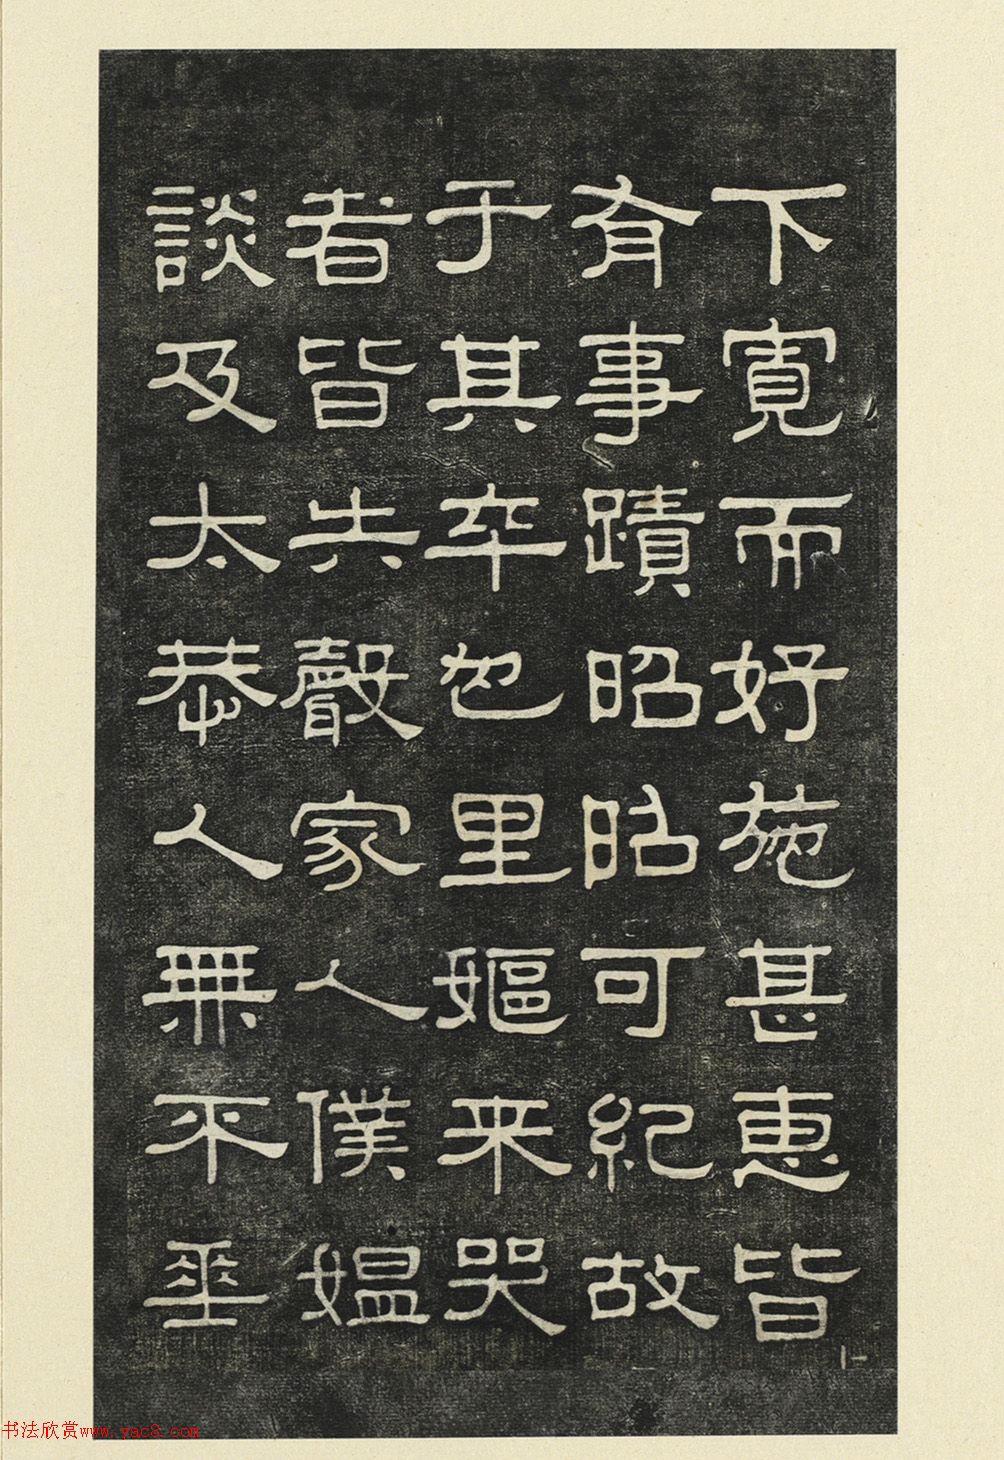 下寬而好施甚惠皆
有事蹟昭昭可紀故
于其卒也里嫗来哭
者皆失聲家人僕媼
談及太恭人無不垂
书法欣赏www.yac8.com